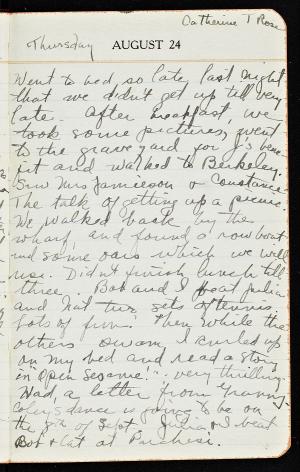 Catherine T Rose
Thursday
AUGUST 24
Went to bed, so late last night
that we didn't get up till very
late. After breakfast, we
took some pictures, went
to the graveyard for J's bene-
fit and walked to Berkeley.
Saw Mrs Jamieson + Constance
The talk of getting up a picnic
We walked back by the
wharf, and found a rowboat
and some oars which we will
use. Didn't finish lunch till
three. Bob and I beat Julia
and Nat two sets of tennis
Lots of fun. Then while the
others swam, I curled up
on my bed and read a story
in "Open Sesame!" - very thrilling.
Had a letter from Granny-
dance is going to be on
the 8th of Sept. Julia + I beat
Bob + Cat at Parchesi.